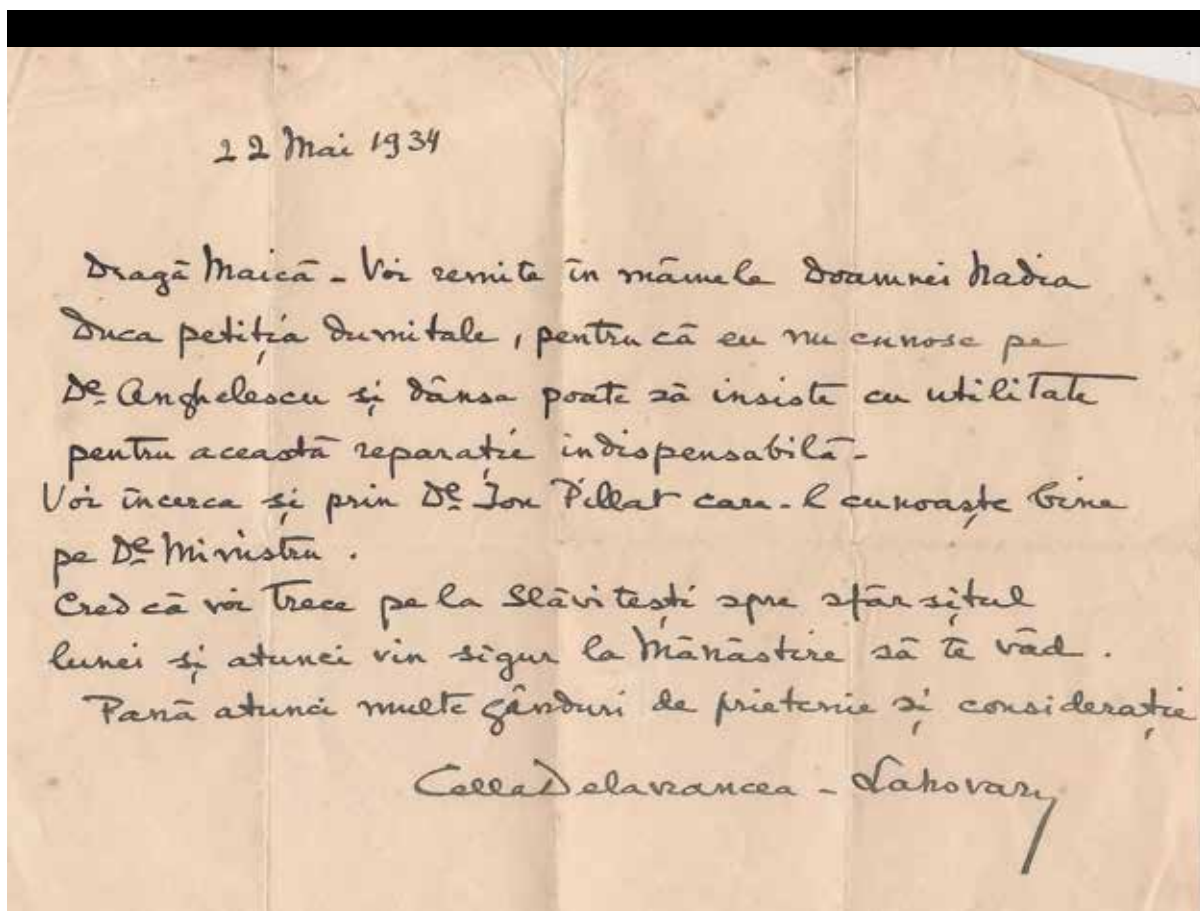 22 Mai 1934
Dragă Maică - Voi remite în mâinele Doamnei Nadia
Duca petiția dumitale, pentru că eu nu cunosc pe
Dl Anghelescu și dânsa poate să insiste cu utilitate
pentru această reparație indispensabilă -
Voi încerca și prin Dl Ion Pillat care-l cunoaște bine
pe Dl Ministru.
Cred că voi trece pe la Slăvitești spre sfârșitul
lunei și atunci vin sigur la Mănăstire să te văd.
Pană atunci multe gânduri de prietenie și considerație
Cella Delavrancea - Lahovary